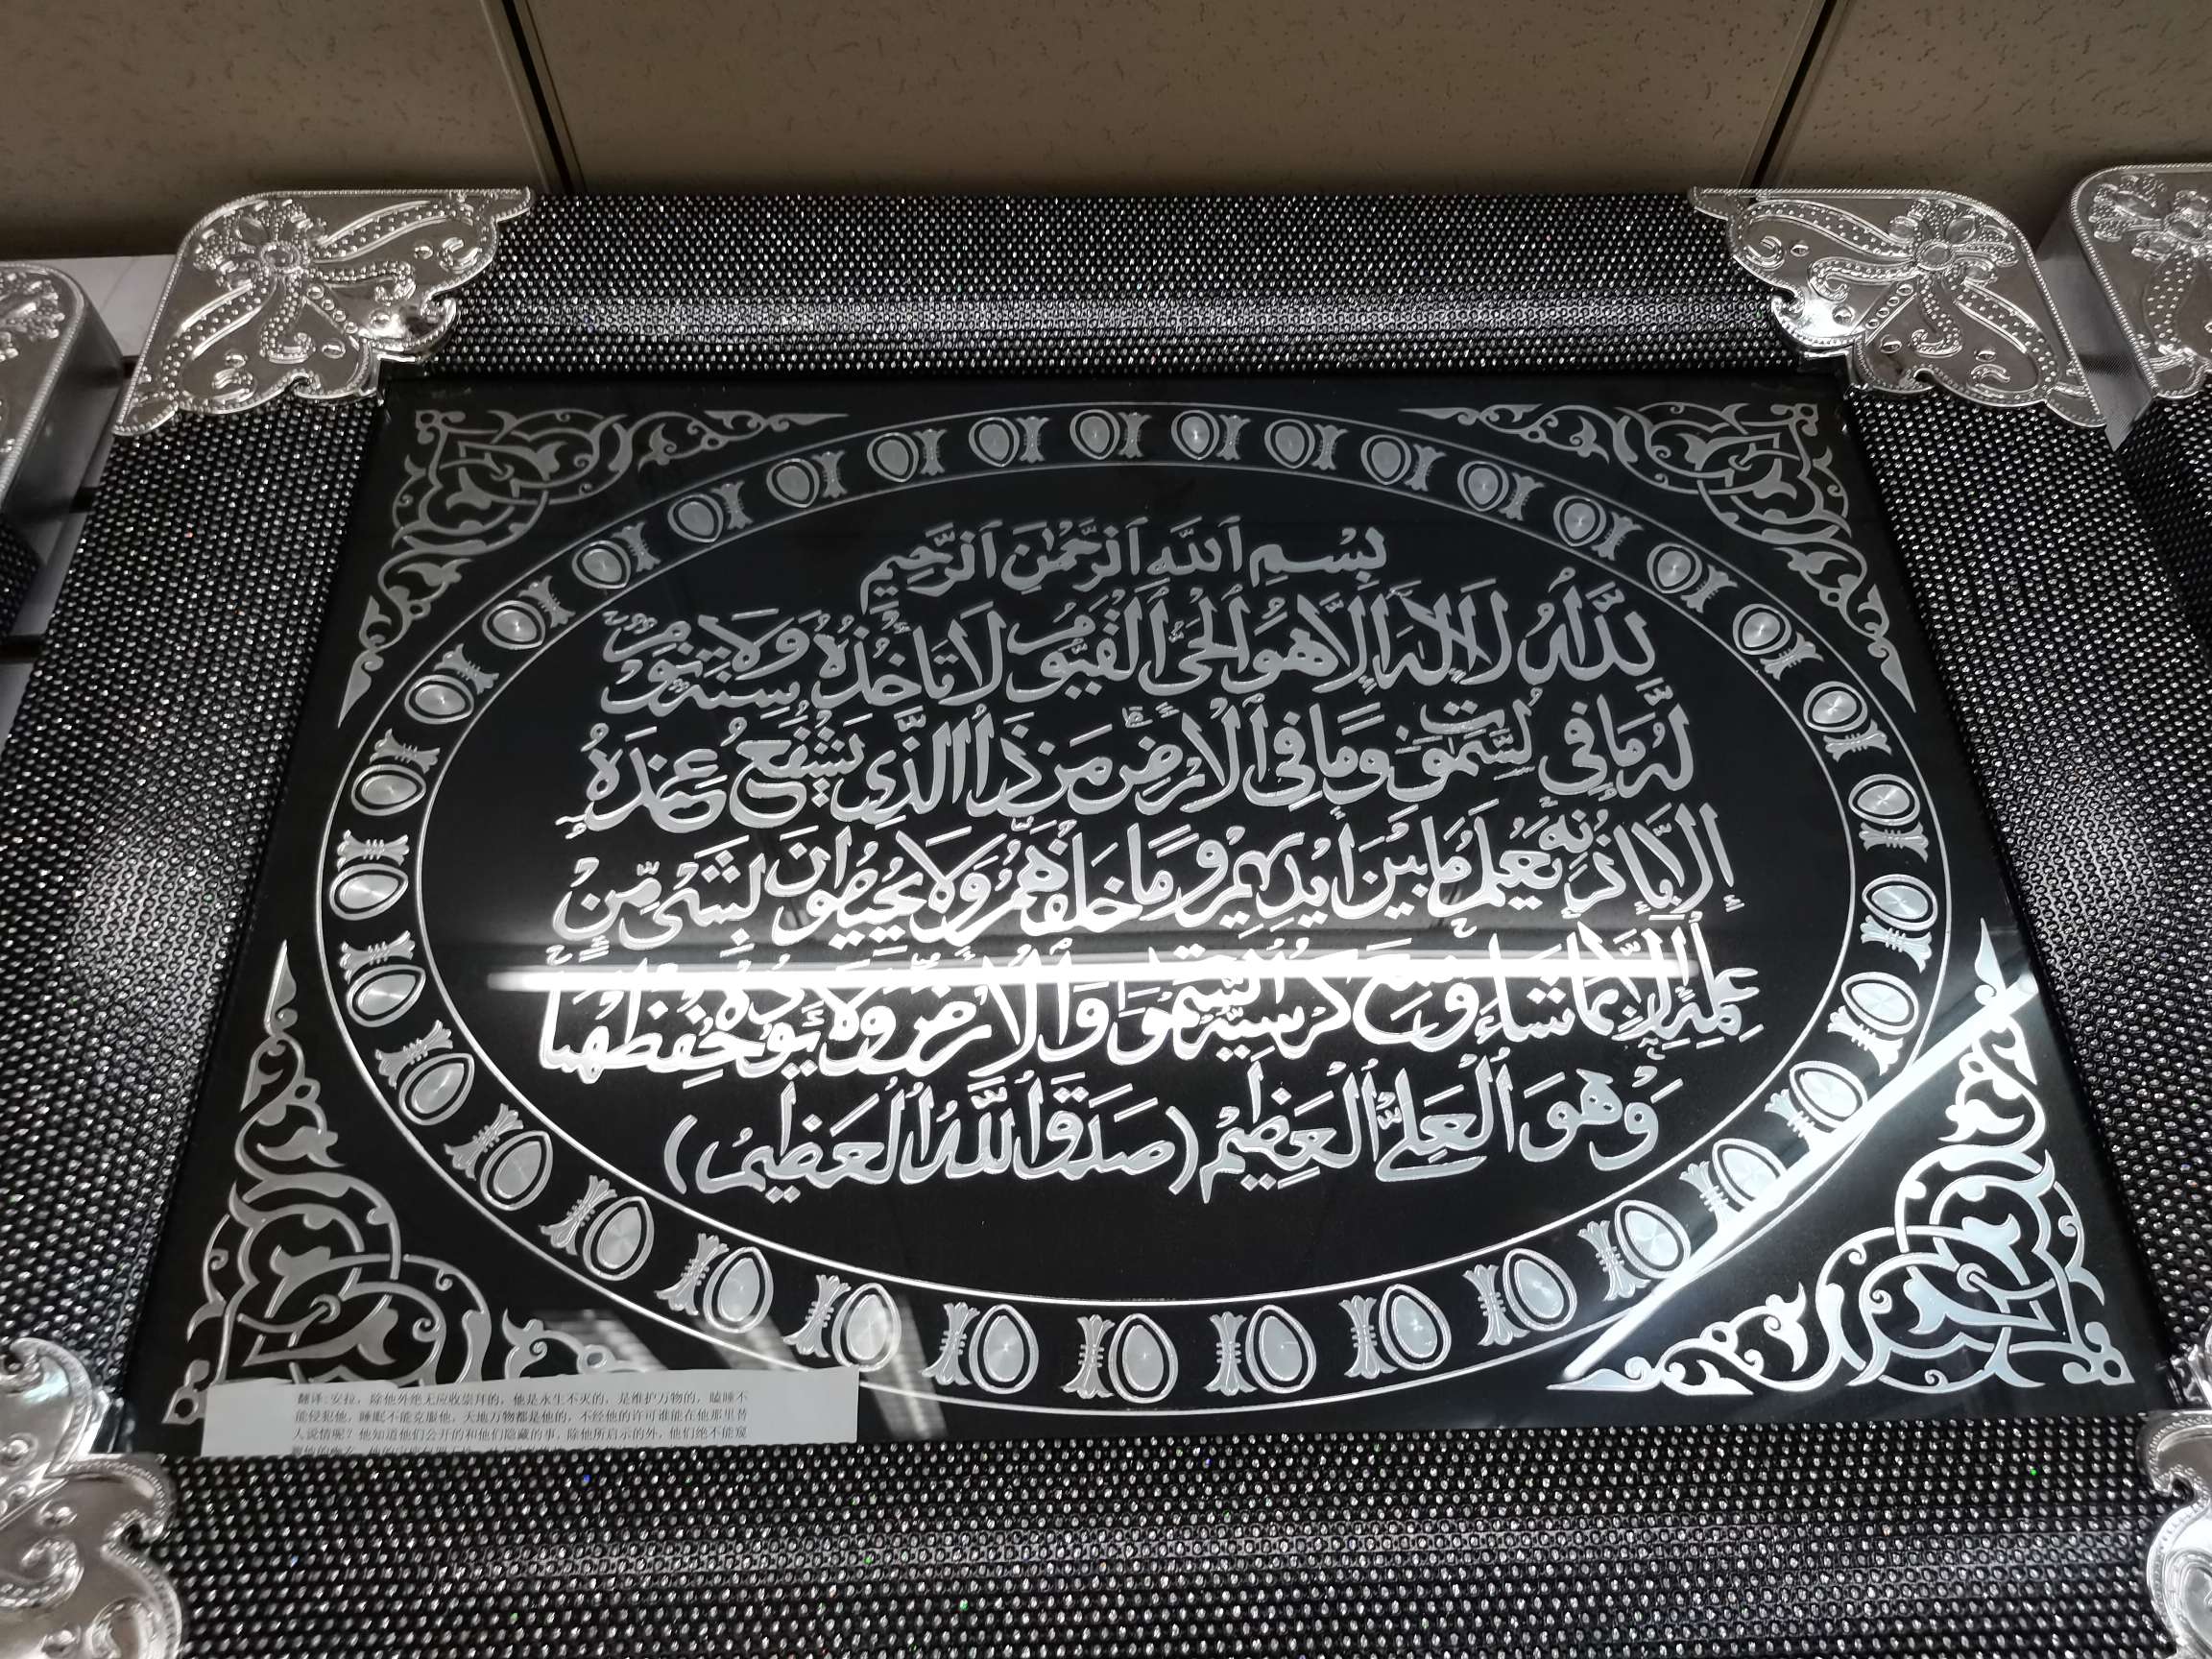 بِسْمِ ٱللَّهِ ٱلرَّحْمَٰنِ ٱلرَّحِيمِ
ٱللَّهُ لَا إِلَٰهَ إِلَّا هُوَ الْحَيُّ ٱلْقَيُّومُ لَا تَأْخُذُهُ سِنَةٌ وَلَا نَوْمٌ
لَّهُ مَا فِي ٱلسَّمَٰوَٰتِ وَمَا فِي ٱلْأَرْضِ مَن ذَا الَّذِي يَشْفَعُ عِندَهُ
إِلَّا بِإِذْنِهِ يَعْلَمُ مَا بَيْنَ أَيْدِيهِمْ وَمَا خَلْفَهُمْ وَلَا يُحِيطُونَ بِشَيْءٍ مِّنْ
عِلْمِهِ إِلَّا بِمَا شَاءَ وَسِعَ كُرْسِيُّهُ السَّمَٰوَٰتِ وَٱلْأَرْضَ وَلَا يَئُودُهُ حِفْظُهُمَا
وَهُوَ ٱلْعَلِيُّ ٱلْعَظِيمُ (صَدَقَ ٱللَّهُ ٱلْعَظِيمُ)
翻译:安拉，除他外绝无应收崇拜的，他是永生不灭的，是维护万物的，瞌睡不
能侵犯他，睡眠不能克服他，天地万物都是他的，不经他的许可谁能在他那里替
人说情呢？他知道他们公开的和他们隐藏的事，除他所启示的外，他们绝不能窥